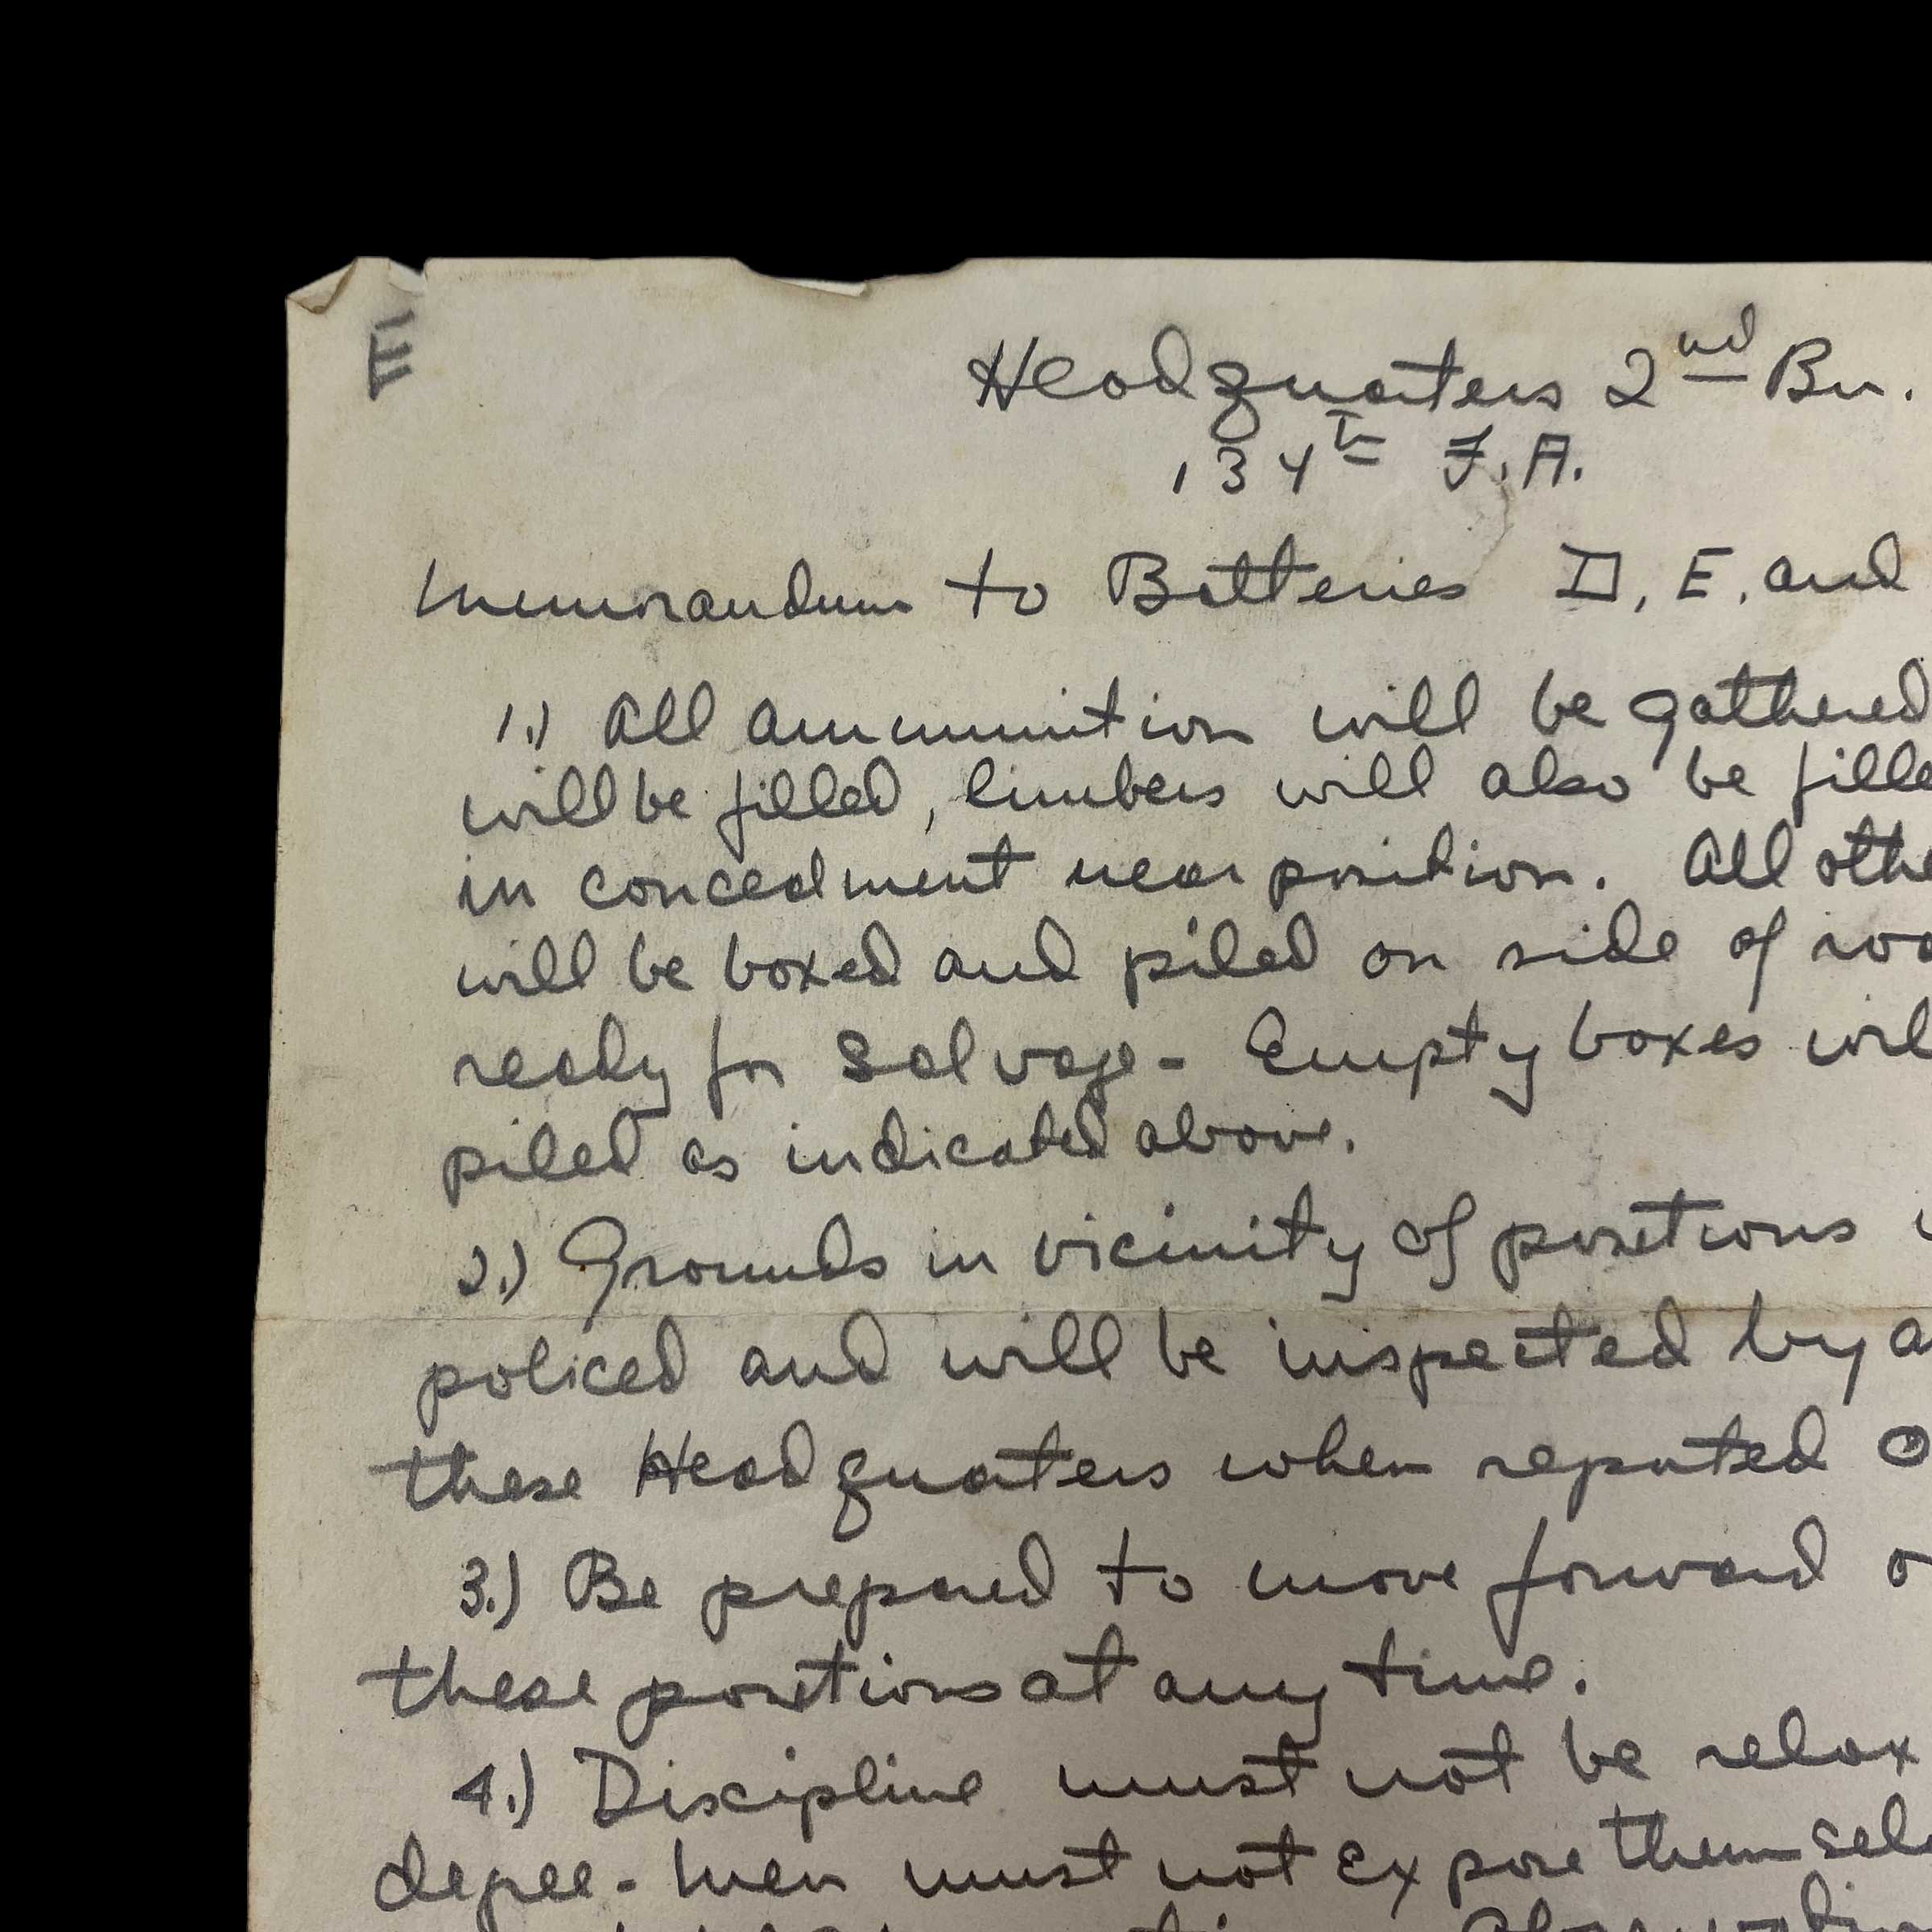 E
Headquarters 2nd Bn.
134th F.A.
Memorandum to Batteries D, E, and
1.) All ammunition will be gathered
will be filled, limbers will also be fille
in concealment near position. All othe
will be boxed and piled on side of roa
ready for Salvage - Empty boxes wil
piled as indicated above.
2.) Grounds in vicinity of positions
policed and will be inspected by a
these Headquarters when reported O
3.) Be prepared to move forward o
these positions at any time.
4.) Discipline must not be relax
degree - Men must not expose themselv